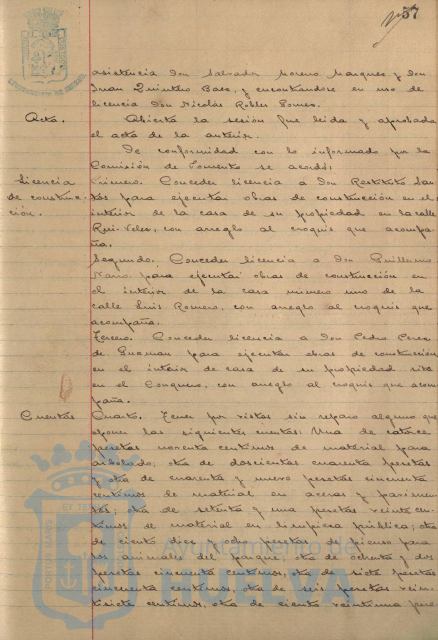 57
asistencia don Salvador Moreno Marquez y don
Juan Quintero Baez, y encontrandose en uso de
licencia Don Nicolas Robles Gomez.
Acta. Abierta la sesión fue leida y aprobada
el acta de la anterior.
De conformidad con lo informado por la
Comisión de Fomento se acordó:
Licencia Primero. Conceder licencia a Don Restituto San-
de construc- para ejecutar obras de construcción en el
ción. interior de la casa de su propiedad en la calle
Rui-Velez, con arreglo al croquis que acompa-
ña.
Segundo. Conceder licencia a Don Guillermo
Naro para ejecutar obras de construcción en
el interior de la casa número uno de la
calle Luis Romero, con arreglo al croquis que
acompaña.
Tercero. Conceder licencia a don Pedro Perez
de Guzman para ejecutar obras de contrucción
en el interior de casa de su propiedad sita
en el Conquero, con arreglo al croquis que acom
paña.
Cuentas Cuarto. Tener por vistas sin reparo alguno que
oponer las siguientes cuentas: Una de catorce
pesetas noventa centimos de material para
arbolado; otra de doscientas cuarenta pesetas
y otra de cuarenta y nueve pesetas cincuenta
centimos de material en aceras y pavimen-
tos; otra de setenta y una pesetas veinte cen-
timos de material en limpieza pública; otra
de ciento diez y ocho pesetas de pienso para
los animales del parque, otra de ochenta y dos
pesetas cincuenta centimos, otra de siete pesetas
cincuenta centimos, otra de seis pesetas vein-
tisiete centimos, otra de ciento veintiuna pese
Ayuntamiento de
HUELVA